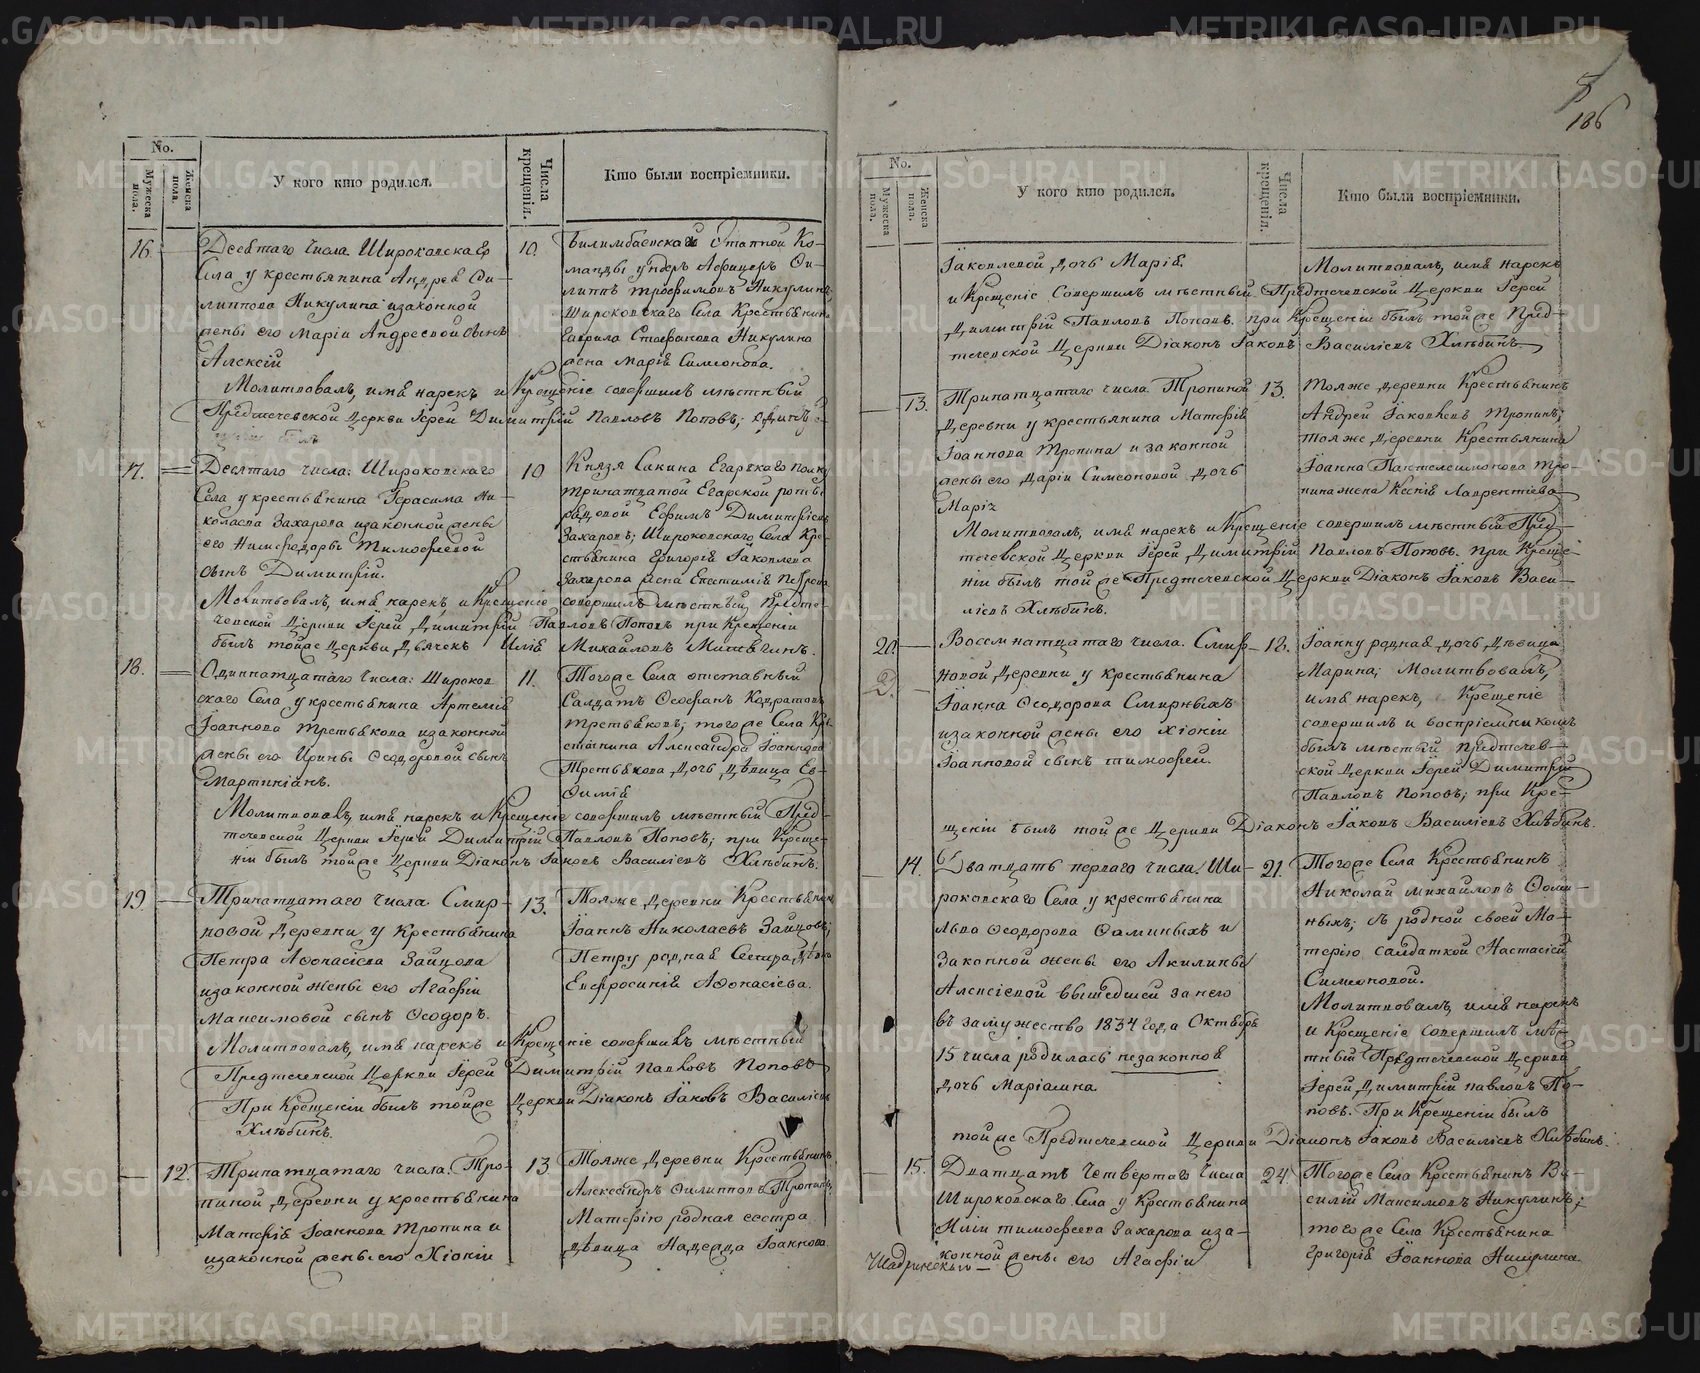 186
No.
Мужеска пола.
Женска пола.
У кого кто родился.
Числа крещенія.
Кто были воспріемники.
16.
Десятаго числа Широковскаго
Села у крестьянина Андрея Фи-
липпова Никулина изаконной
жены его Маріи Андреевой сынъ
Алексій
10.
Билимбаевской Статной Ко-
манды ундеръ Афицеръ Фи-
липпъ Трофимовъ Никулинъ
Широковскаго Села Крестьянина
Гаврила Стефанова Никулина
жена Марія Симеонова.
Молитвовалъ, имя нарекъ и Крещеніе совершилъ мѣстный
Предтечевской Церкви Іерей Димитрій Павловъ Поповъ;
17.
Десятаго числа: Широковскаго
Села у крестьянина Герасима Ни-
колаева Захарова изаконной жены
его Нимфодоры Тимофеевой
сынъ Димитрій.
10
Князя Сакина Егарскаго полку
тринатцатой Егарской роты
рядовой Ефимъ Димитріевъ
Захаровъ; Широковскаго Села Кре-
стьянина Григорія Іаковлева
Захарова жена Евстимія Петрова
Молитвовалъ, имя нарекъ, и Крещеніе совершилъ мѣстный Предте-
чевской Церкви Іерей Димитрій Павловъ Поповъ при Крещеніи
былъ тойже Церкви Дьячекъ Илія Михайловъ Митягинъ.
18.
Одиннатцатаго числа: Широков
скаго Села у крестьянина Артемія
Іоаннова Третьякова изаконной
жены его Ирины Феодоровой сынъ
Мартиніанъ.
11.
Тогоже Села отставный
Салдатъ Феофанъ Кодратовъ
Третьяковъ; тогоже Села Кре-
стьянина Александра Іоаннова
Третьякова дочь дѣвица Ев-
фимія
Молитвовалъ, имя нарекъ и Крещеніе совершилъ мѣстный Пред-
течевской Церкви Іерей Димитрій Павловъ Поповъ; при Креще-
ніи былъ тойже Церкви Діаконъ Іаковъ Василіевъ Хлѣбинъ.
19.
Тринатцатаго числа. Смир-
новой Деревни у Крестьянина
Петра Афонасіева Зайцова
изаконной жены его Агафіи
Максимовой сынъ Феодоръ.
13.
Тояже Деревни Крестьянинъ
Іоаннъ Николаевъ Зайцовъ;
Петру родная Сестра, дѣвица
Евфросинія Афонасіева.
Молитвовалъ, имя нарекъ и Крещеніе совершилъ мѣстный
Предтечевской Церкви Іерей Димитрій Павловъ Поповъ
При Крещеніи былъ тойже Церкви Діаконъ Іаковъ Василіевъ
Хлѣбинъ.
12.
Тринатцатаго числа. Тро-
пиной Деревни у крестьянина
Матфія Іоаннова Тропина и
изаконной жены его Хіоніи
13
Тояже Деревни Крестьянинъ
Александръ Филипповъ Тропинъ,
Матфію родная сестра
дѣвица Надежда Іоаннова.
No.
Мужеска пола.
Женска пола.
У кого кто родился.
Числа крещенія.
Кто были воспріемники.
Іаковлевой, дочь Марія.
Молитвовалъ, имя нарекъ
и Крещеніе Совершилъ мѣстный Предтечевской Церкви Іерей
Димитрій Павловъ Поповъ. при Крещеніи былъ тойже Пред-
течевской Церкви Діаконъ Іаковъ Василіевъ Хлѣбинъ
13.
Тринатцатаго числа. Тропиной
Деревни у крестьянина Матфія
Іоаннова Тропина и законной
жены его Даріи Симеоновой дочь
Марія
13.
Тояже деревни Крестьянинъ
Андрей Іаковлевъ Тропинъ;
Тояже Деревни Крестьянина
Іоанна Пантелеимонова Тро-
пина жена Ксенія Лаврентіева
Молитвовалъ, имя нарекъ и Крещеніе совершилъ мѣстный Пред-
течевской Церкви Іерей Димитрій Павловъ Поповъ. при Креще-
ніи былъ тойже Предтечевской Церкви Діаконъ Іаковъ Васи-
ліевъ Хлѣбинъ.
20.
Восемнатцатаго числа. Смир-
новой Деревни у крестьянина
Іоанна Феодорова Смирныхъ
изаконной жены его Хіоніи
Іоанновой сынъ Тимофей.
18.
Іоанну родная дочь, дѣвица
Марина; Молитвовалъ,
имя нарекъ, Крещеніе
совершилъ и воспріемникомъ
былъ мѣстный Предтечев-
ской Церкви Іерей Димитрій
Павловъ Поповъ; при Кре-
щеніи былъ тойже Церкви Діаконъ Іаковъ Василіевъ Хлѣбинъ.
14.
Дватцать перваго числа. Ши-
роковскаго Села у крестьянина
Льва Феодорова Фаминыхъ и
Законной жены его Акилины
Алексіевой вышедшей занего
въ замужество 1834 года Октября
15 числа родилась незаконноя
дочь Маріамна
21.
Тогоже Села Крестьянинъ
Николай Михайловъ Фоми-
ныхъ; съ родной своей Ма-
терію салдаткой Настасіей
Симеоновой.
Молитвовалъ, имя нарекъ
и Крещеніе совершилъ мѣс-
тный Предтечевской Церкви
Іерей Димитрій Павловъ По-
повъ. При Крещеніи былъ
тойже Предтечевской Церкви Діаконъ Іаковъ Василіевъ Хлѣбинъ.
15.
Дватцать Четвертаго числа
Широковскаго Села у Крестьянина
Иліи Тимофеева Захарова иза-
конной жены его Агафіи
24.
Тогоже Села Крестьянинъ Ва-
силій Максимовъ Никулинъ;
тогоже Села Крестьянина
Григорія Іоаннова Никулина.
Шадринскаго